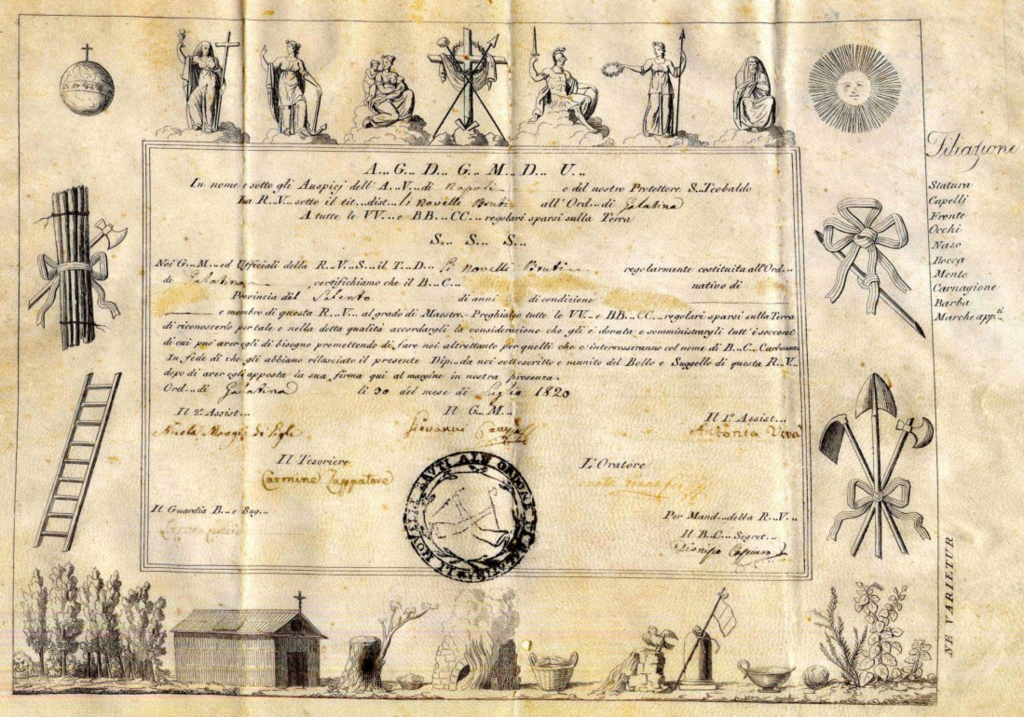 A... G... D... G... M... D... U...
In nome e sotto gli Auspicj dell' A...V... di Napoli e del nostro Protettore S...Teobaldo
La R...V... sotto il tit...dist... li Novelli Bruti all' Ord...di Galatina
A tutte le VV... e BB...CC... regolari sparsi sulla Terra
S... S... S...
Noi G...M...ed Ufficiali della R...V...S...il T...D... li Novelli Bruti regolarmente costituita all'Ord...
di Galatina certifichiamo che il B...C... nativo di
Provincia del Salento di anni di condizione
e membro di questa R...V... al grado di Maestro. Preghiamo tutte le VV... e BB...CC...regolari sparsi sulla Terra
di riconoscerlo per tale e nella detta qualità accordargli la considerazione che gli è dovuta e somministrargli tutt'i soccorsi
di cui può aver gli di bisogno promettendo di fare noi altrettanto per quelli che c'interesseranno col nome di B...C... Carbonari
In fede di che gli abbiamo rilasciato il presente Dip...da noi sottoscritto e munito del Bollo e Suggello di questa R...V...
dopo di aver egli apposta la sua firma qui al margine in nostra presenza.
Ord...di Galatina li 30 del mese di Luglio 1820
Il 2º Assist... Il G...M... Il 1º Assist...
Giovanni Antonio Viva
Il Tesoriere L'Oratore
Carmine Zappatore
Il Guardia B... e Sug... Per Mand...della R...V...
Il B...C... Segret...
NOVELLI BRUTI ALL ORDONE DI GALATINA
Filiazione
Statura
Capelli
Fronte
Occhi
Naso
Bocca
Mento
Carnagione
Barba
Marche app.ti
NE VARIETUR